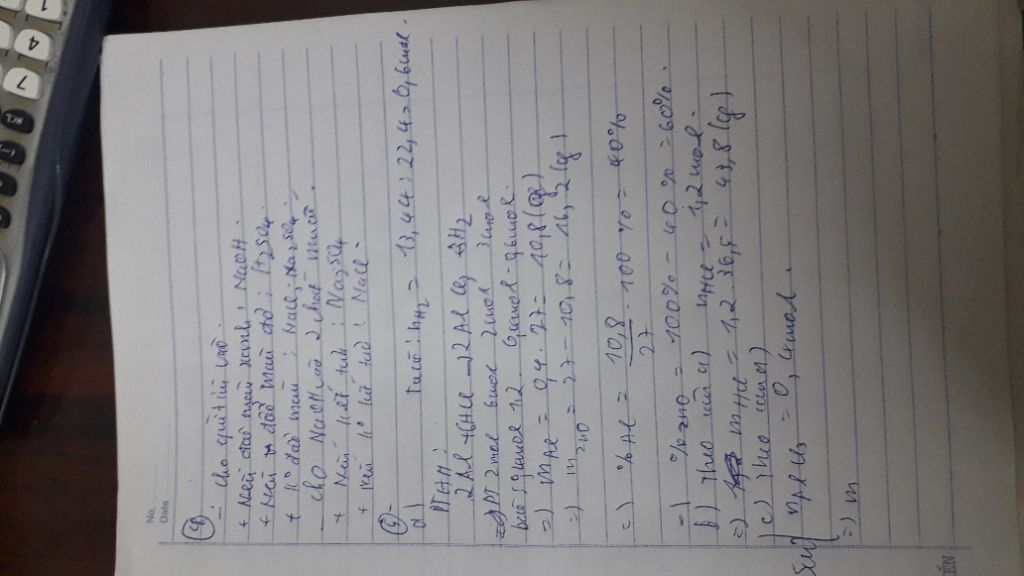 No.
Date
4)
- Cho quì tím vào
+ Nếu đổi màu xanh: NaOH.
+ Nếu đổi màu đỏ: H2SO4
+ K° đổi màu: NaCl; Na2SO4
- Cho 2 chất
+ Nếu kết tủa: Na2SO4
+ Nếu k° kết tủa: NaCl.
5)
a) Theo: nH2 = 13,44 : 22,4 = 0,6 mol.
PTHH:
2Al + 6HCl → 2AlCl3 3H2
PT 2mol 6mol 2mol 3mol
0,4mol 1,2 0,4mol - 0,6mol.
=) mAl = 0,4 . 27 = 10,8 (g)
=) mZnO = 27 - 10,8 = 16,2 (g)
=) %Al = 10,8 / 27 . 100% = 40%
=) %ZnO = 100% - 40% = 60%.
b) Theo câu a) nHCl = 1,2 mol.
=) mHCl = 1,2 . 36,5 = 43,8 (g)
c) Theo câu a)
nAlCl3 = 0,4mol.
=) m
7
4
1